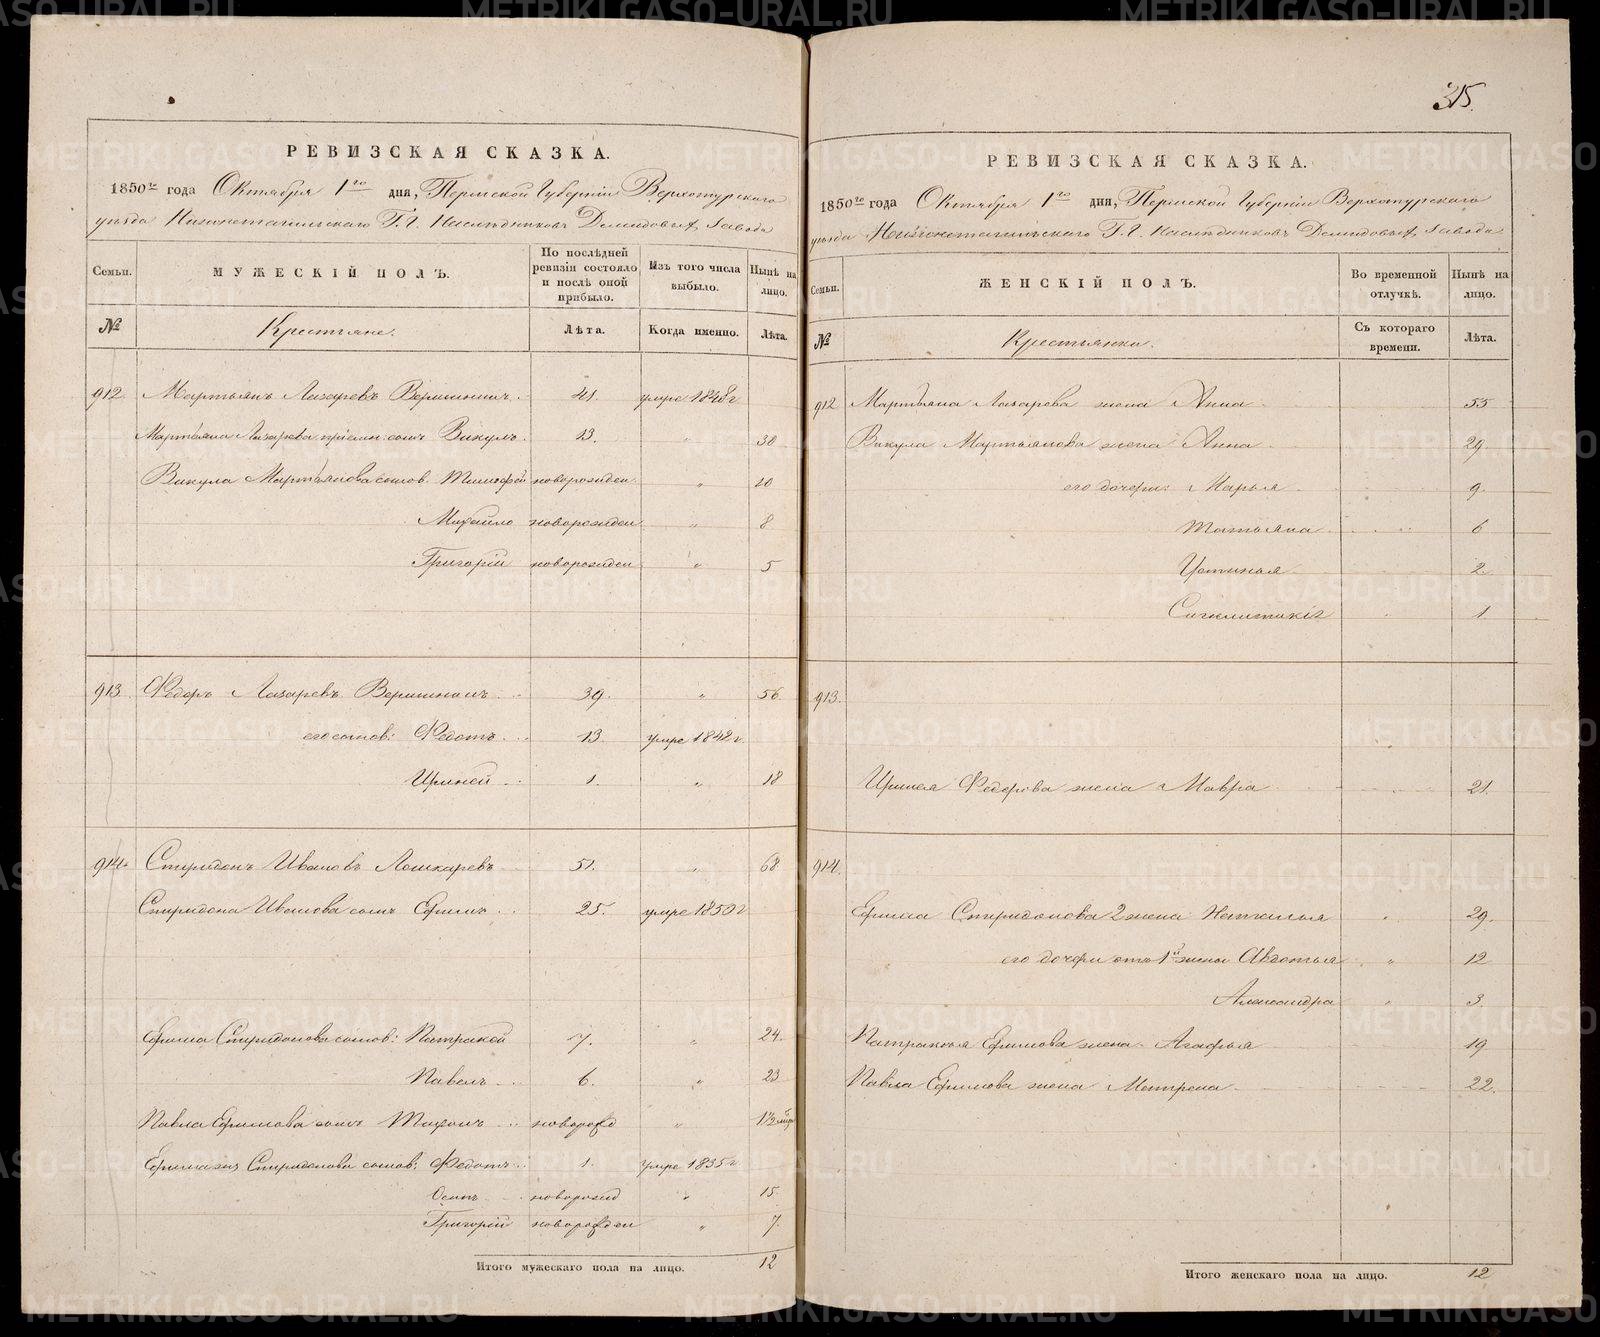 315.
РЕВИЗСКАЯ СКАЗКА.
1850го года Октября 1го дня, Пермской Губернiи Верхотурскаго
уѣзда Нижнетагильскаго Г.Г. Наслѣдниковъ Демидовыхъ завода
Семьи. МУЖЕСКIЙ ПОЛЪ. По послѣдней ревизiи состояло и послѣ оной прибыло. Изъ того числа выбыло. Нынѣ на лицо.
№ Крестьяне. Лѣта. Когда именно. Лѣта.
912. Мартьянъ Лазаревъ Вершининъ. 41. умре 1848 г
Мартьяна Лазарева прiемн: сынъ Викулъ. 13. " 30
Викула Мартьянова сынов. Тимофей новорожден " 10
Михайло новорожден " 8
Григорiй новорожден " 5
913. Федоръ Лазаревъ Вершининъ 39. " 56.
его сынов: Федотъ 13 умре 1842 г.
Ириней 1. " 18
914. Спиридонъ Ивановъ Лошкаревъ 51. " 68
Спиридона Иванова сынъ Ефимъ 25. умре 1850 г
Ефима Спиридонова сынов: Патракей 7. " 24.
Павелъ 6. " 23
Павла Ефимова сынъ Тифонъ новорожд " 1½
Ефима жъ Спиридонова сынов: Федотъ 1. умре 1835 г.
Осипъ новорожд " 15.
Григорiй новорожден " 7.
Итого мужескаго пола на лицо. 12
РЕВИЗСКАЯ СКАЗКА.
1850го года Октября 1го дня, Пермской Губернiи Верхотурскаго
уѣзда Нижнетагильскаго Г.Г. Наслѣдниковъ Демидовыхъ завода
Семьи. ЖЕНСКIЙ ПОЛЪ. Во временной отлучкѣ. Нынѣ на лицо.
№ Крестьянки. Съ котораго времени. Лѣта.
912 Мартьяна Лазарева жена Анна 55
Викула Мартьянова жена Анна 29.
его дочери: Марья 9.
Татьяна 6
Устинья 2.
Сигклитикiя 1
913.
Иринея Федорова жена Мавра 21.
914.
Ефима Спиридонова 2 жена Наталья " 29.
его дочери отъ 1й жены Авдотья " 12
Александра " 3.
Патракея Ефимова жена Агафья 19
Павла Ефимова жена Матрена 22.
Итого женскаго пола на лицо. 12
METRIKI.GASO-URAL.RU